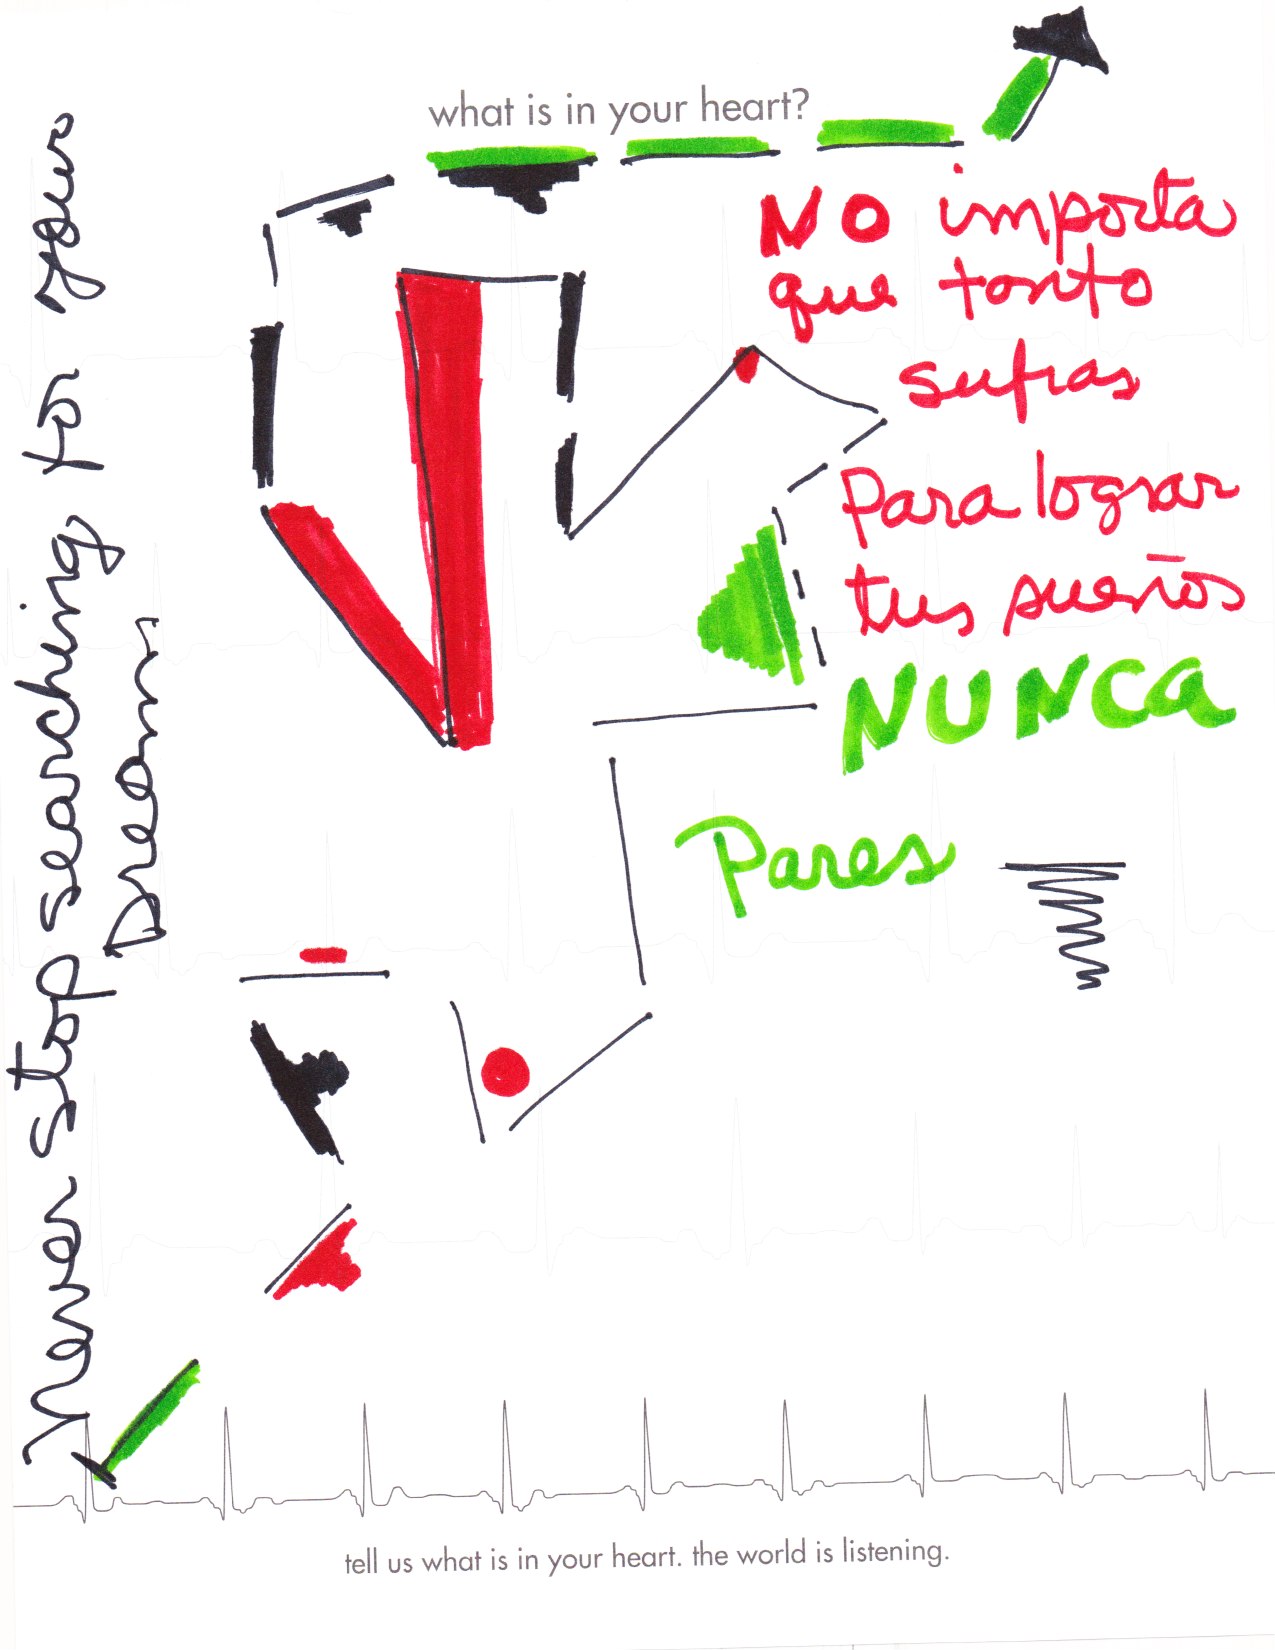 what is in your heart?
NO importa
que tanto
sufras
Para lograr
tus sueños
NUNCA
Pares
Never stop searching for your
Dreams
tell us what is in your heart. the world is listening.